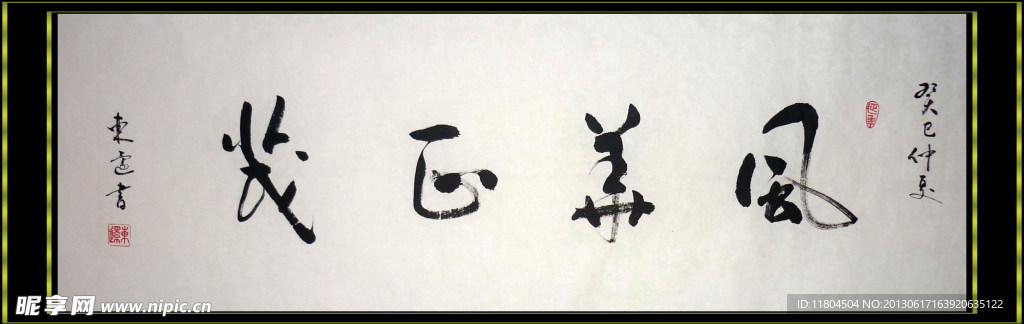 癸巳仲夏
風華正茂
東虚書
昵享网 www.nipic.cn
ID:11804504 NO:20130617163920635122